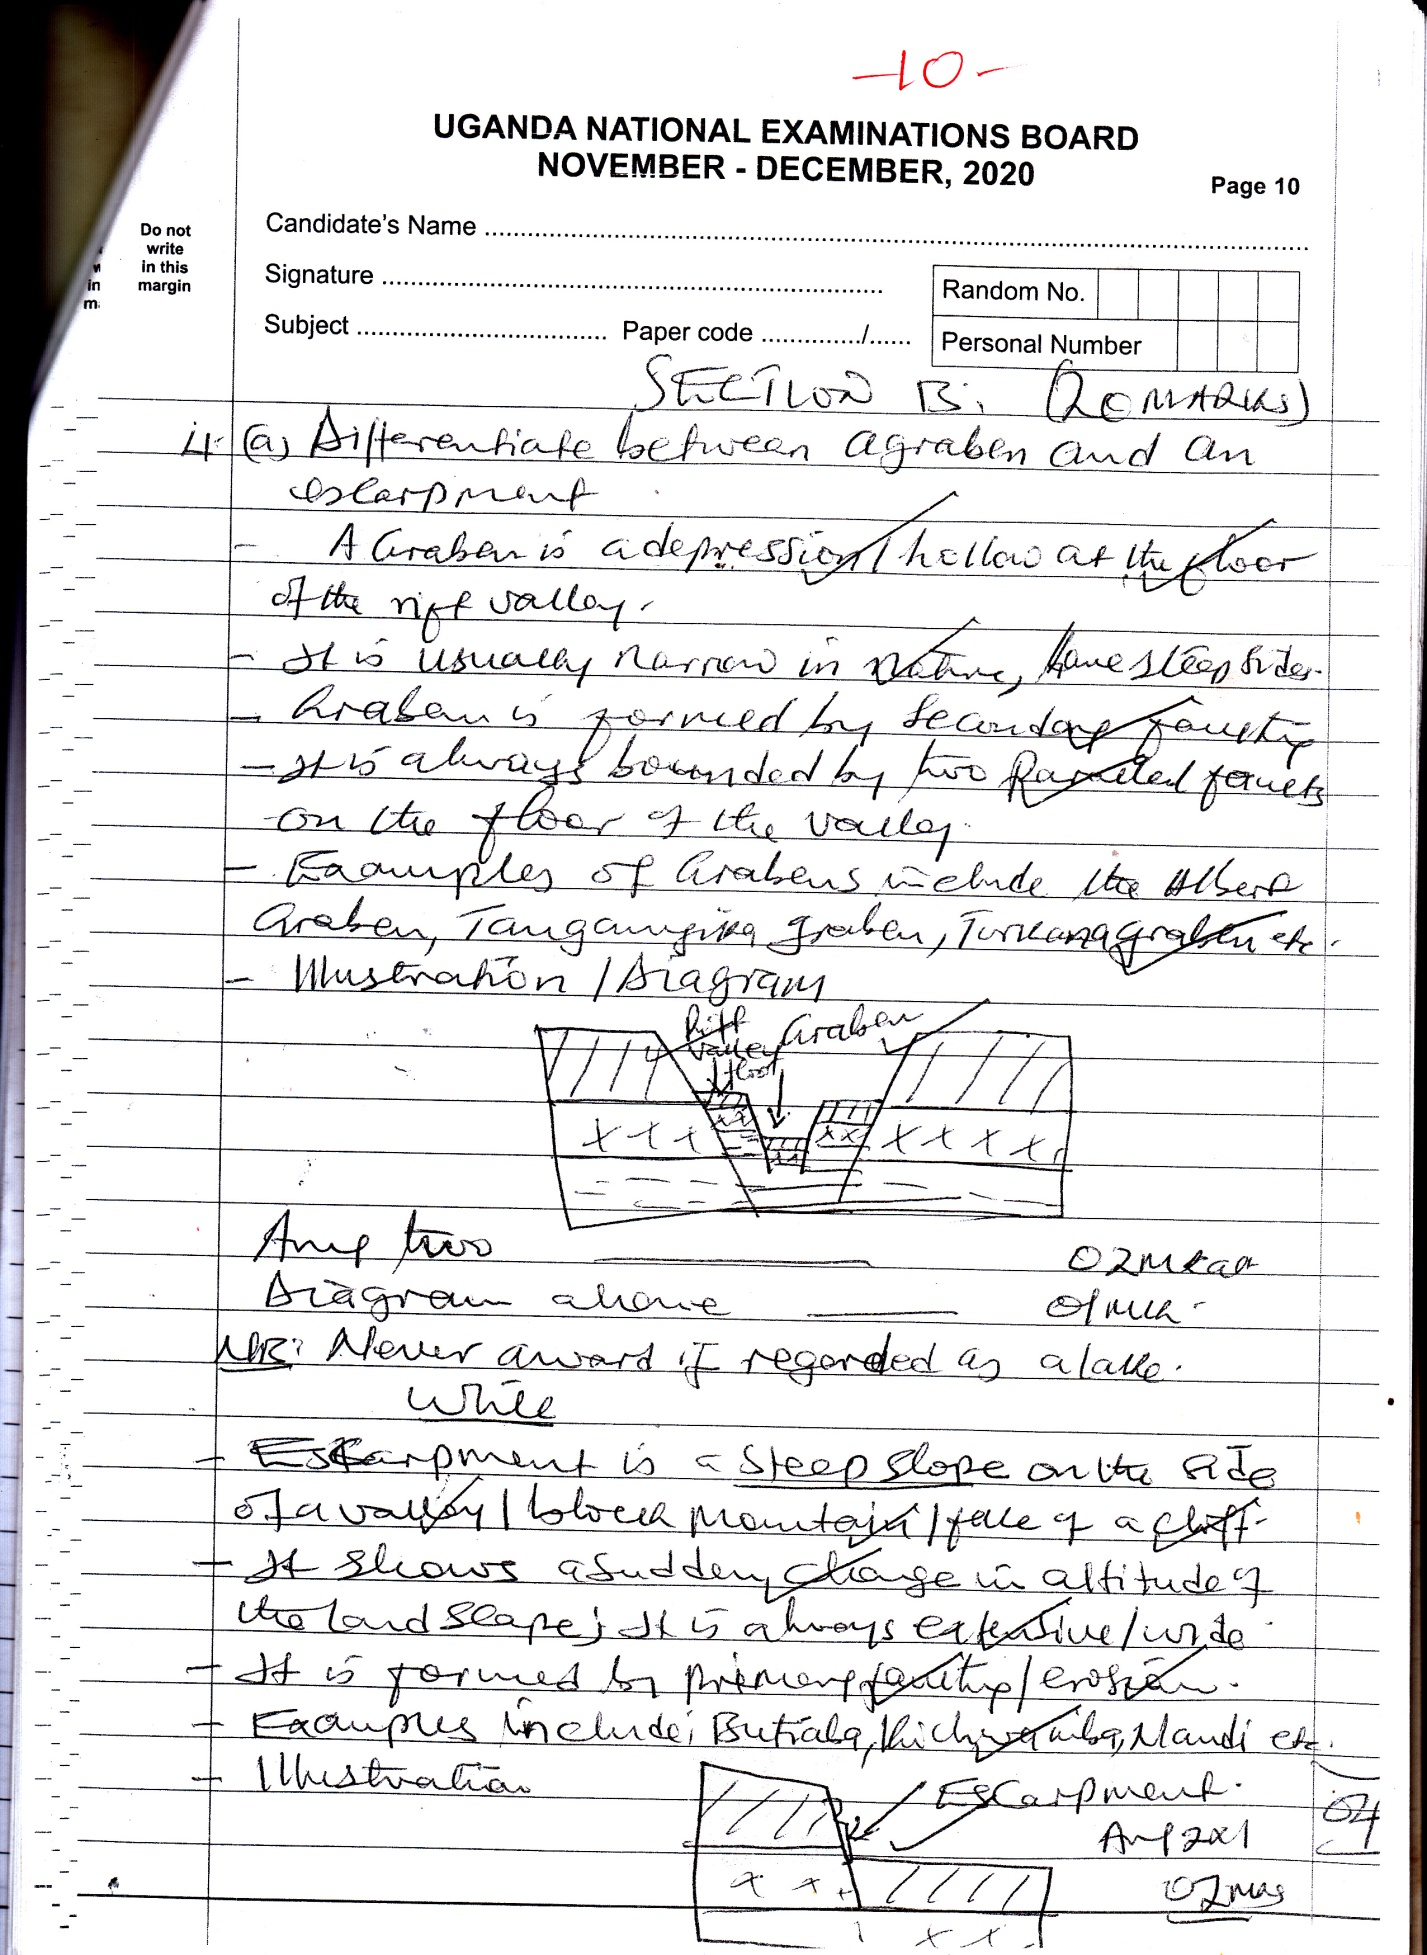 -10-
UGANDA NATIONAL EXAMINATIONS BOARD
NOVEMBER - DECEMBER, 2020
Page 10
Do not
write
in this
margin
Candidate's Name
Signature
Random No.
Subject Paper code /
Personal Number
SECTION B: (20 MARKS)
4. (a) Differentiate between a graben and an
escarpment
- A Graben is a depression / hollow at the floor
of the rift valley.
- It is usually narrow in nature, have steep sides.
- Graben is formed by secondary faulting
- It is always bounded by two Paralled faults
on the floor of the valley.
- Examples of Grabens include the Albert
Graben, Tanganyika graben, Turkana graben etc.
- Illustration / Diagram
Rift valley floor
Graben
Any two 02 mks
Diagram above 01 mk.
NB: Never award if regarded as a lake.
While
- Escarpment is a steep slope on the side
of a valley / block mountain / face of a cliff.
- It shows a sudden change in altitude of
the landscape; It is always extensive / wide
- It is formed by primary faulting / erosion.
- Examples include; Butiaba, Kichwamba, Mandi etc.
- Illustration
Escarpment.
04
Any 2x1
02 mks